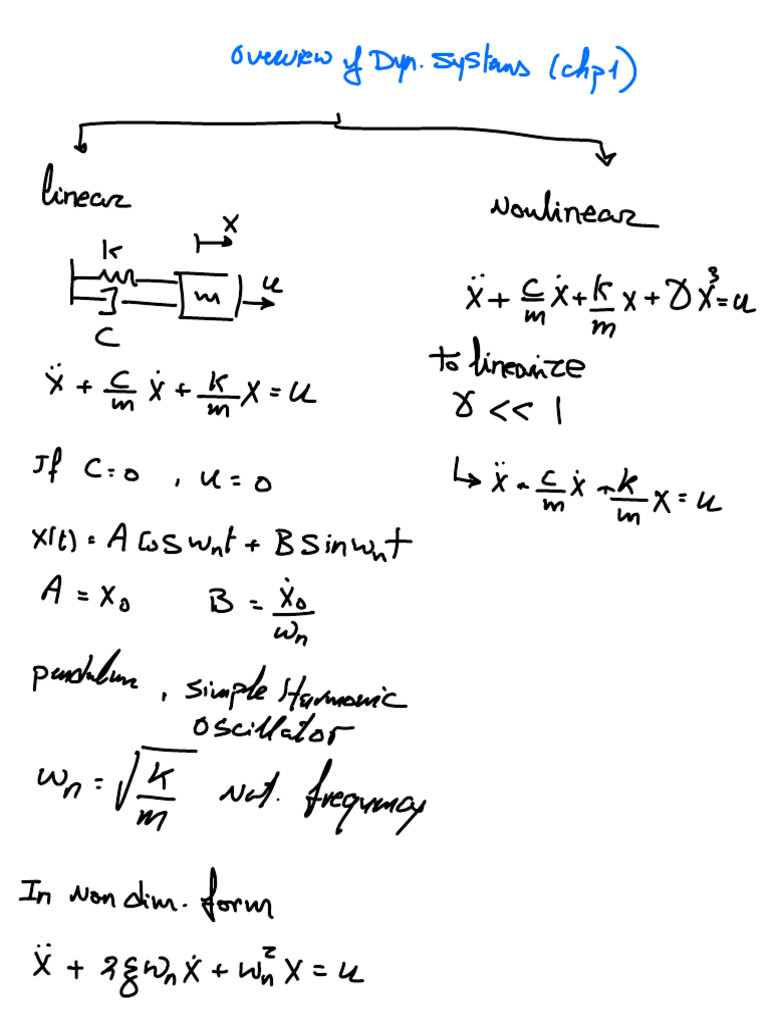 Overview of Dyn. Systems (chp1)
linear
x
k
m
u
C
ẍ + c/m ẋ + k/m x = u
If C = 0 , u = 0
x(t) = A cos ωnt + B sin ωnt
A = x₀ B = ẋ₀/ωn
pendulum , simple Harmonic
oscillator
ωn = √(k/m) Nat. frequency
In Non dim. form
ẍ + 2ξωnẋ + ωn² x = u
Nonlinear
ẍ + c/m ẋ + k/m x + γx³ = u
to linearize
γ << 1
↳ ẍ + c/m ẋ + k/m x = u